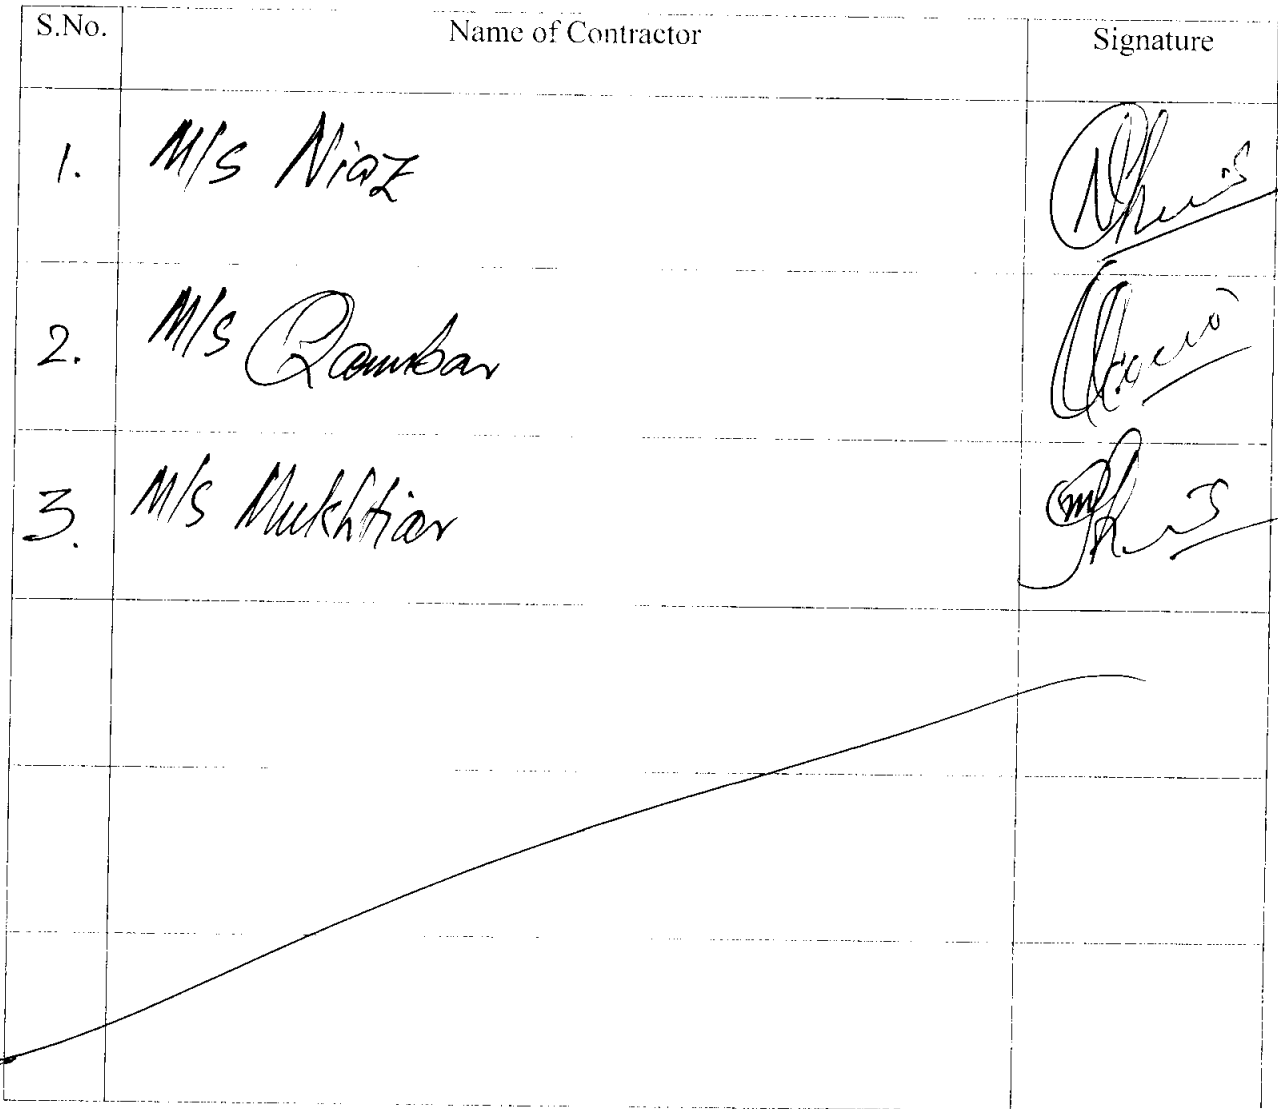 S.No. Name of Contractor Signature
1. M/s Niaz
2. M/s Qambar
3. M/s Mukhtiar